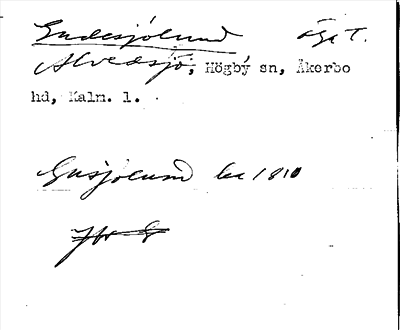 Gudesjölund äge T.
Alvedsjö, Högby sn, Åkerbo
hd, Kalm. l.
Gusjölund ler 1810